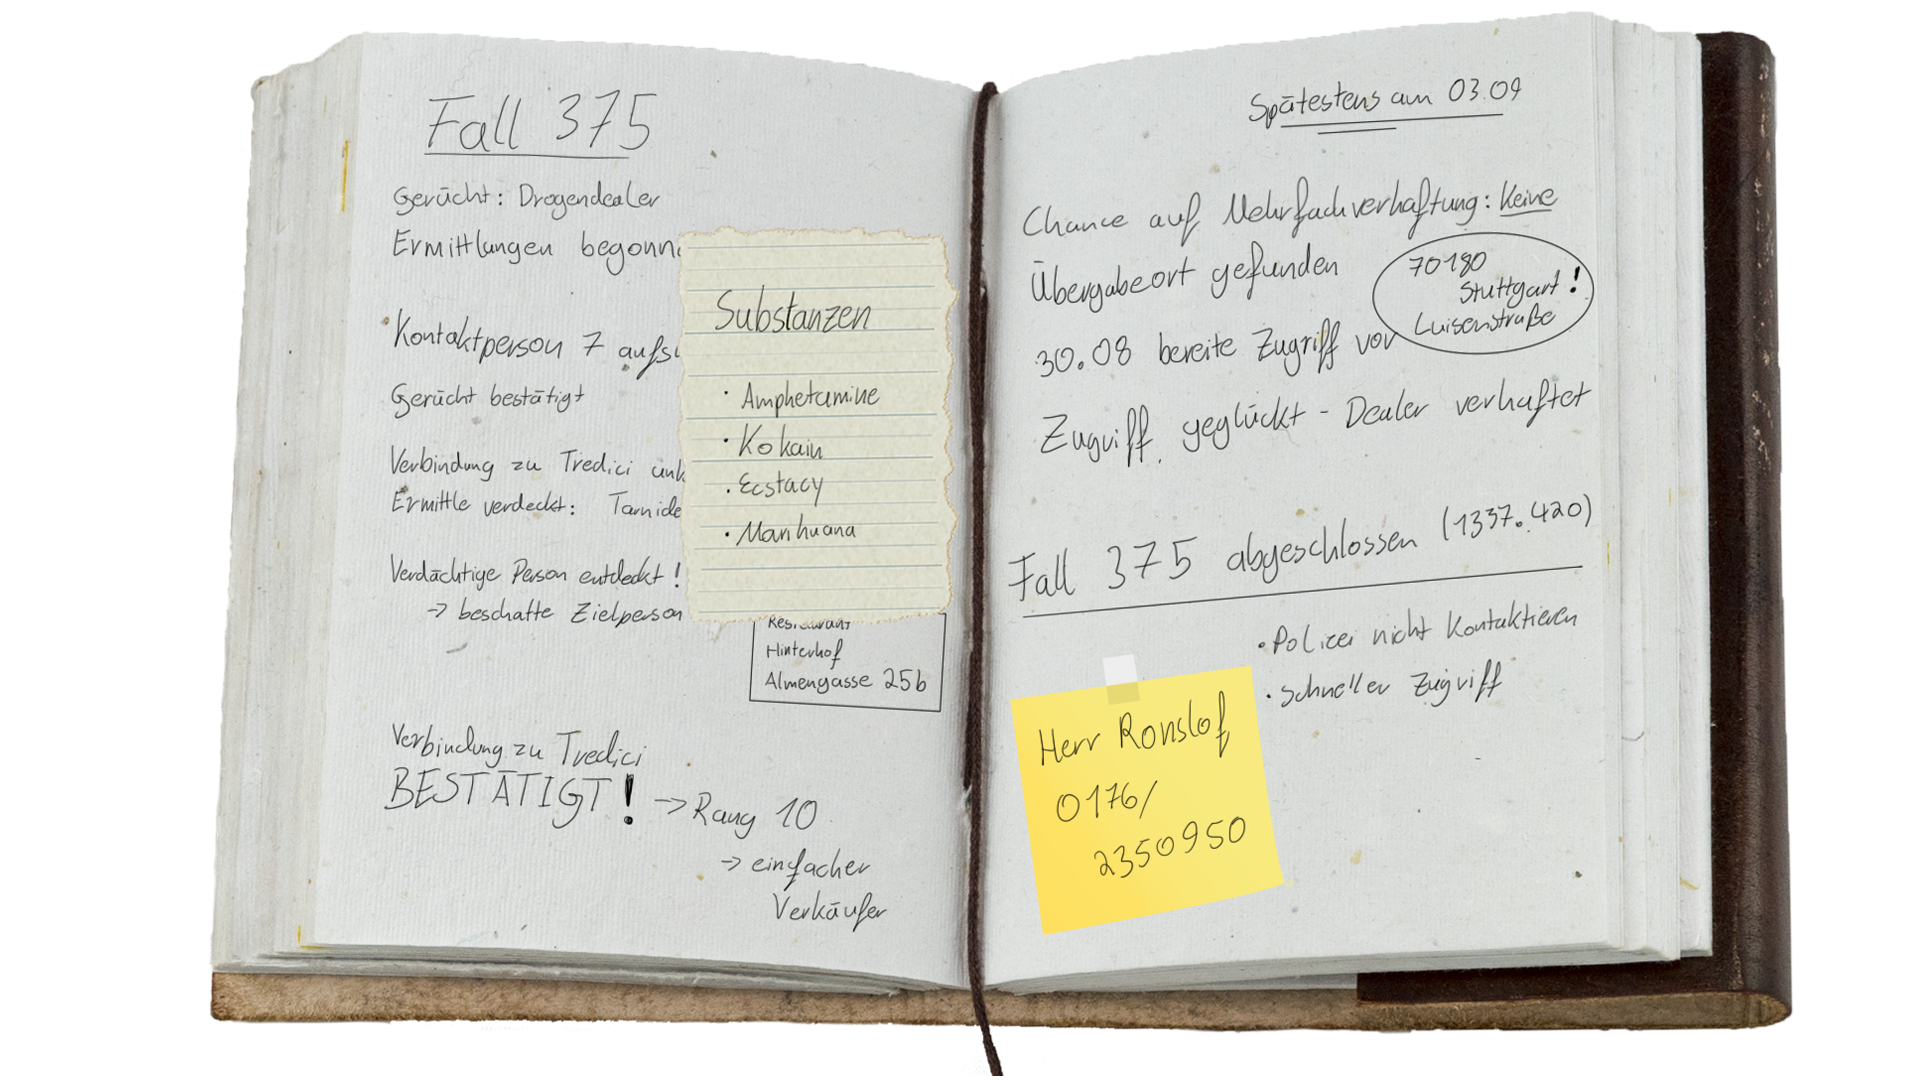 Fall 375
Gerücht: Drogendealer
Ermittlungen begonn
Kontaktperson 7 aufs
Gerücht bestätigt
Verbindung zu Tredici unk
Ermittle verdeckt: Tarnide
Verdächtige Person entdeckt!
-> beschatte Zielperson
Substanzen
· Amphetamine
· Kokain
· Ecstacy
· Marihuana
Restaurant
Hinterhof
Almengasse 25b
Verbindung zu Tredici
BESTÄTIGT! -> Rang 10
-> einfacher
Verkäufer
Spätestens am 03.09
Chance auf Mehrfachverhaftung: Keine
Übergabeort gefunden
70180
Stuttgart!
Luisenstraße
30.08 bereite Zugriff vor
Zugriff geglückt - Dealer verhaftet
Fall 375 abgeschlossen (1337.420)
· Polizei nicht Kontaktieren
· schneller Zugriff
Herr Ronslof
0176/
2350950